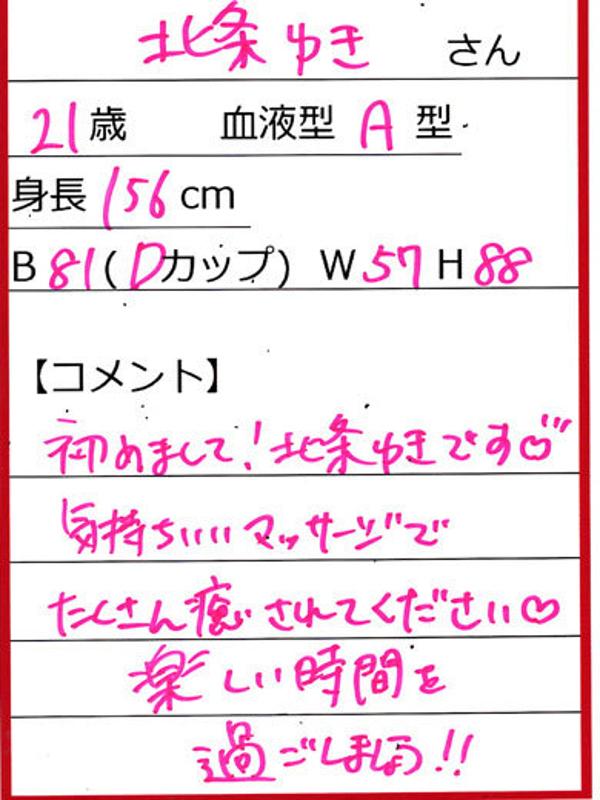 北条ゆき さん
21歳 血液型 A 型
身長 156 cm
B 81 (Dカップ) W 57 H 88
【コメント】
初めまして!北条ゆきです♡
気持ちいいマッサージで
たくさん癒されてください♡
楽しい時間を
過ごしましょう!!